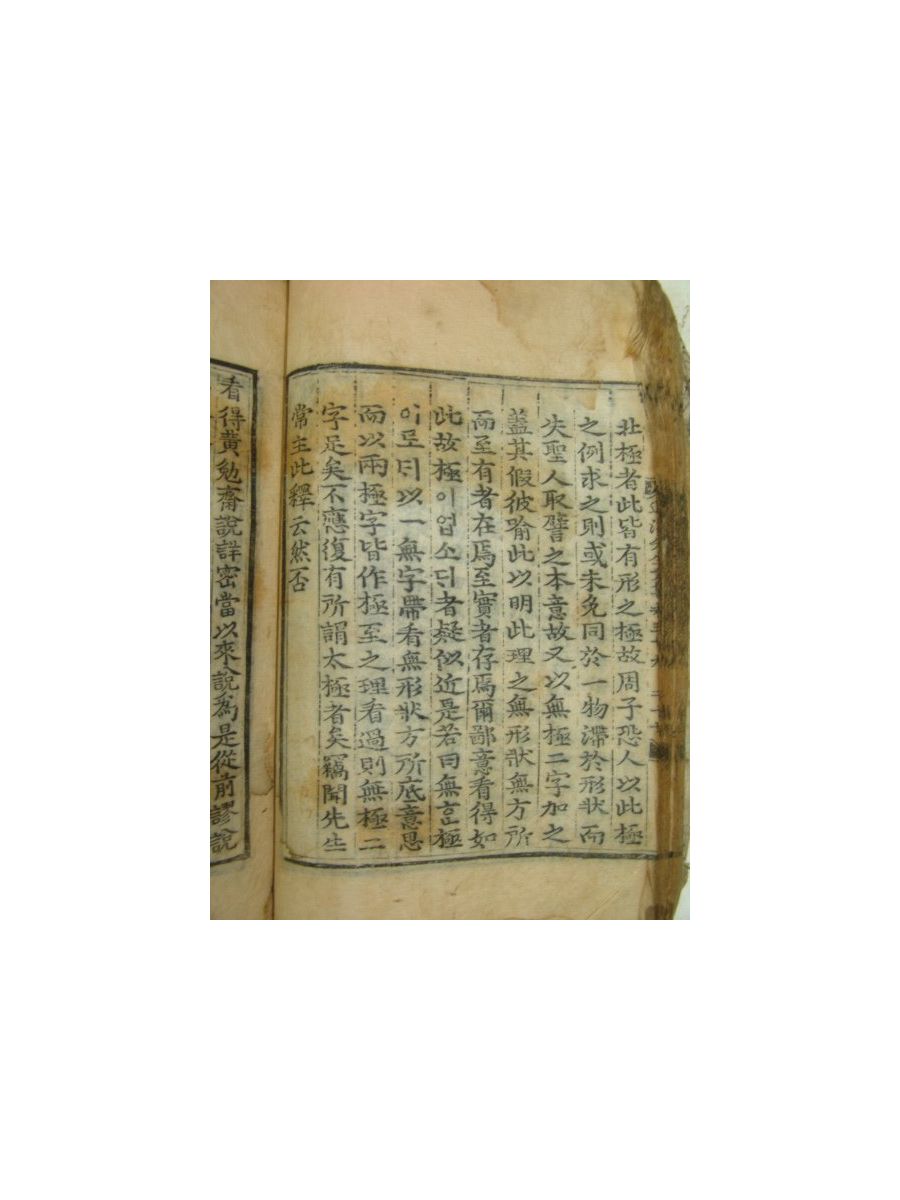 北極者此皆有形之極故周子恐人以此極
之例求之則或未免同於一物滯於形狀而
失聖人取譬之本意故又以無極二字加之
蓋其假彼喻此以明此理之無形狀無方所
而至有者在焉至實者存焉爾鄙意看得如
此故極이업소ᄃᆡ者疑似近是若曰無극
이로ᄃᆡ以一無字帶看無形狀方所底意思
而以兩極字皆作極至之理看過則無極二
字足矣不應復有所謂太極者矣竊聞先生
常主此釋云然否
看得黃勉齋說詳密當以來說為是從前謬說